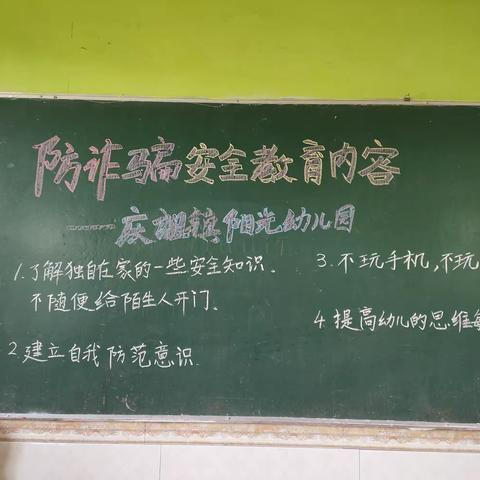 防诈骗安全教育内容
——庆祖镇阳光幼儿园
1.了解独自在家的一些安全知识。
不随便给陌生人开门。
2.建立自我防范意识.
3.不玩手机,不玩
4.提高幼儿的思维敏